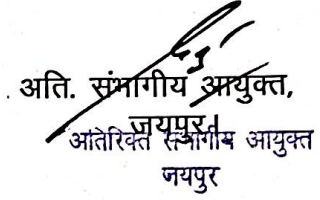 अति. संभागीय आयुक्त,
जयपुर।
अतिरिक्त संभागीय आयुक्त
जयपुर